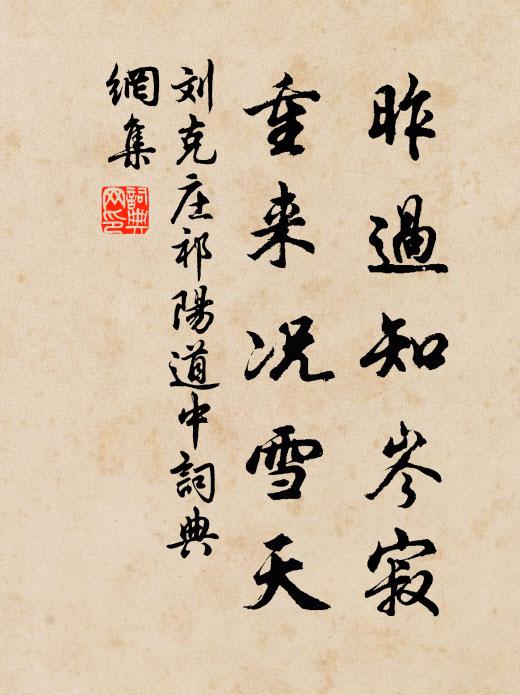 昨過知岑寂
重来况雪天
刘克庄祁陽道中詞典
網集
詞典網印